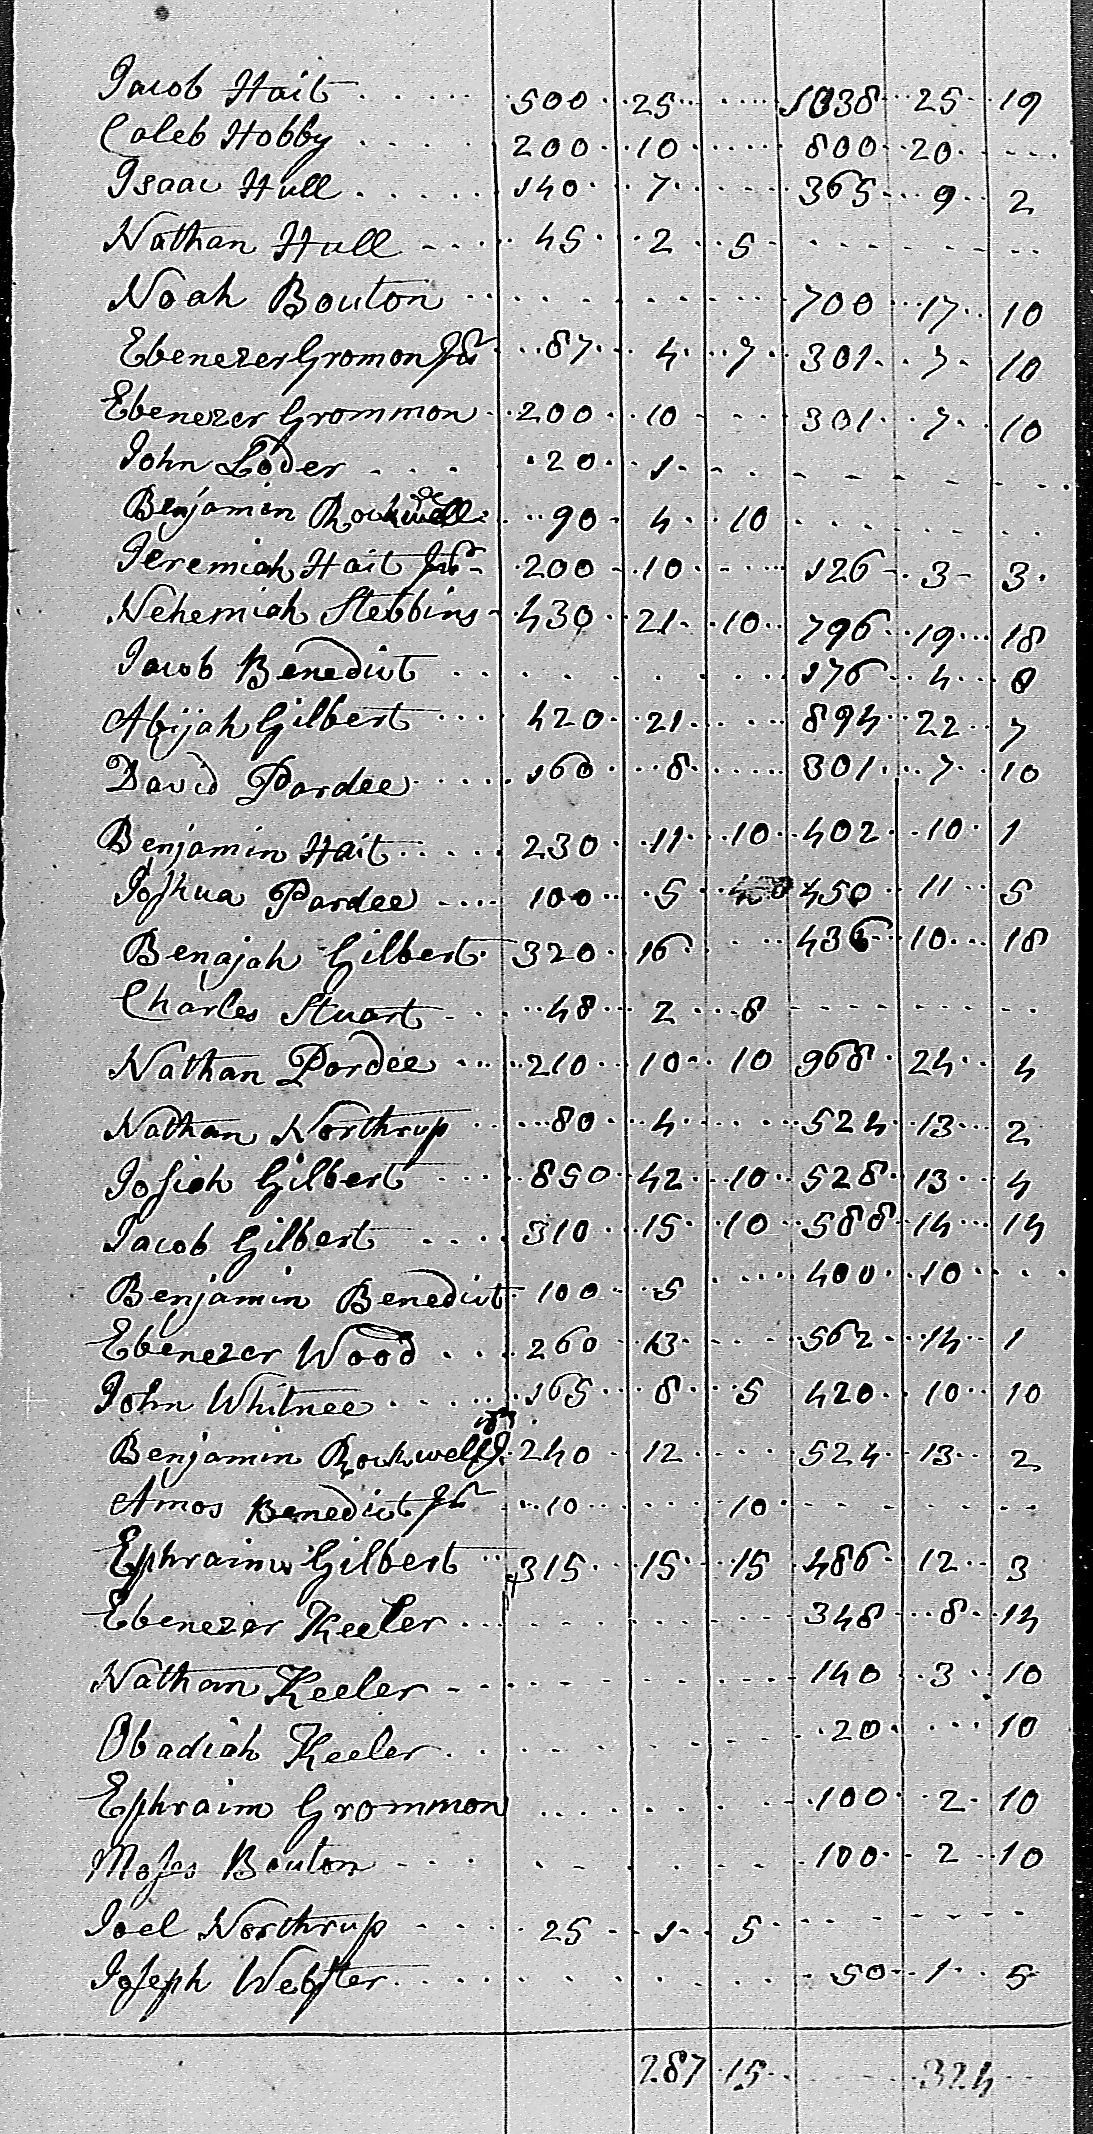 Jacob Hait 500 25 1038 25 19
Caleb Hobby 200 10 800 20
Isaac Hull 140 7 365 9 2
Nathan Hull 45 2 5
Noah Bouton 700 17 10
Ebenezer Gromon Jur 87 4 7 301 7 10
Ebenezer Grommon 200 10 301 7 10
John Loder 20 1
Benjamin Rockwell 90 4 10
Jeremiah Hait Jur 200 10 126 3 3
Nehemiah Stebbins 430 21 10 796 19 18
Jacob Benedict 176 4 8
Abijah Gilbert 420 21 894 22 7
David Pardee 160 8 301 7 10
Benjamin Hait 230 11 10 402 10 1
Joshua Pardee 100 5 450 11 5
Benajah Gilbert 320 16 436 10 18
Charles Stuart 48 2 8
Nathan Pardee 210 10 10 968 24 4
Nathan Northrup 80 4 524 13 2
Josiah Gilbert 850 42 10 528 13 4
Jacob Gilbert 310 15 10 588 14 14
Benjamin Benedict 100 5 400 10
Ebenezer Wood 260 13 562 14 1
John Whitnee 165 8 5 420 10 10
Benjamin Rockwell 240 12 524 13 2
Amos Benedict Jur 10 10
Ephraim Gilbert 315 15 15 486 12 3
Ebenezer Keeler 348 8 14
Nathan Keeler 140 3 10
Obadiah Keeler 20 10
Ephraim Grommon 100 2 10
Moses Bouton 100 2 10
Joel Northrup 25 1 5
Joseph Webster 50 1 5
287 15 324